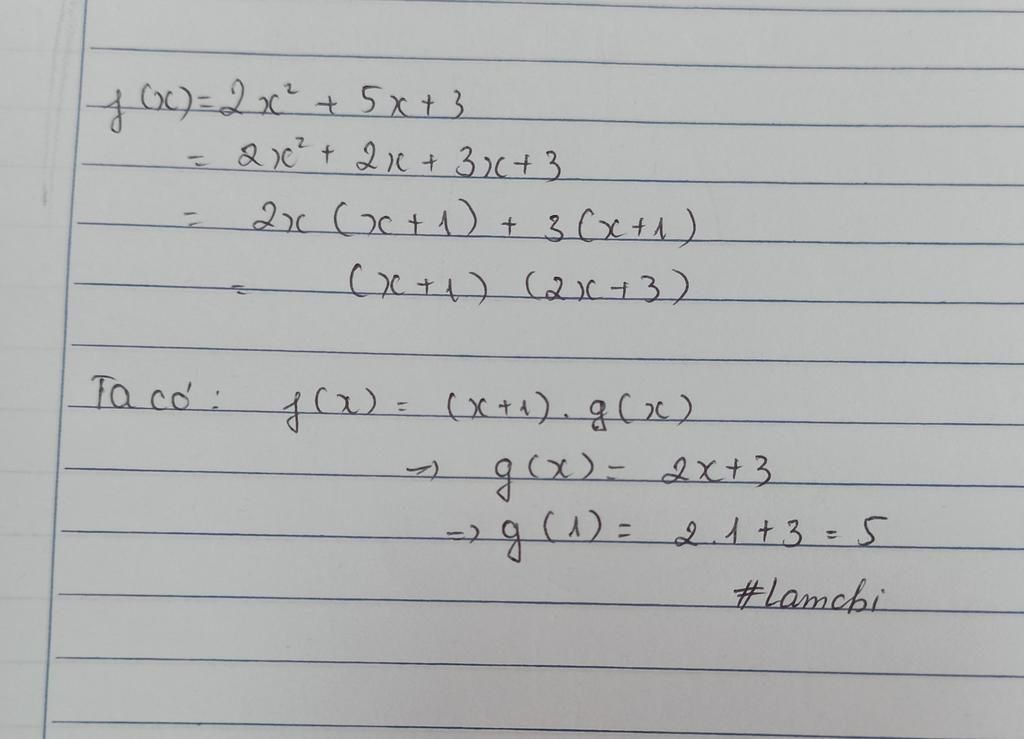 f(x)=2x² + 5x+3
= 2x² + 2x + 3x+3
= 2x (x+1) + 3(x+1)
= (x+1) (2x+3)
Ta có: f(x) = (x+1).g(x)
=> g(x)= 2x+3
=> g(1)= 2.1+3 = 5
#Lamchi